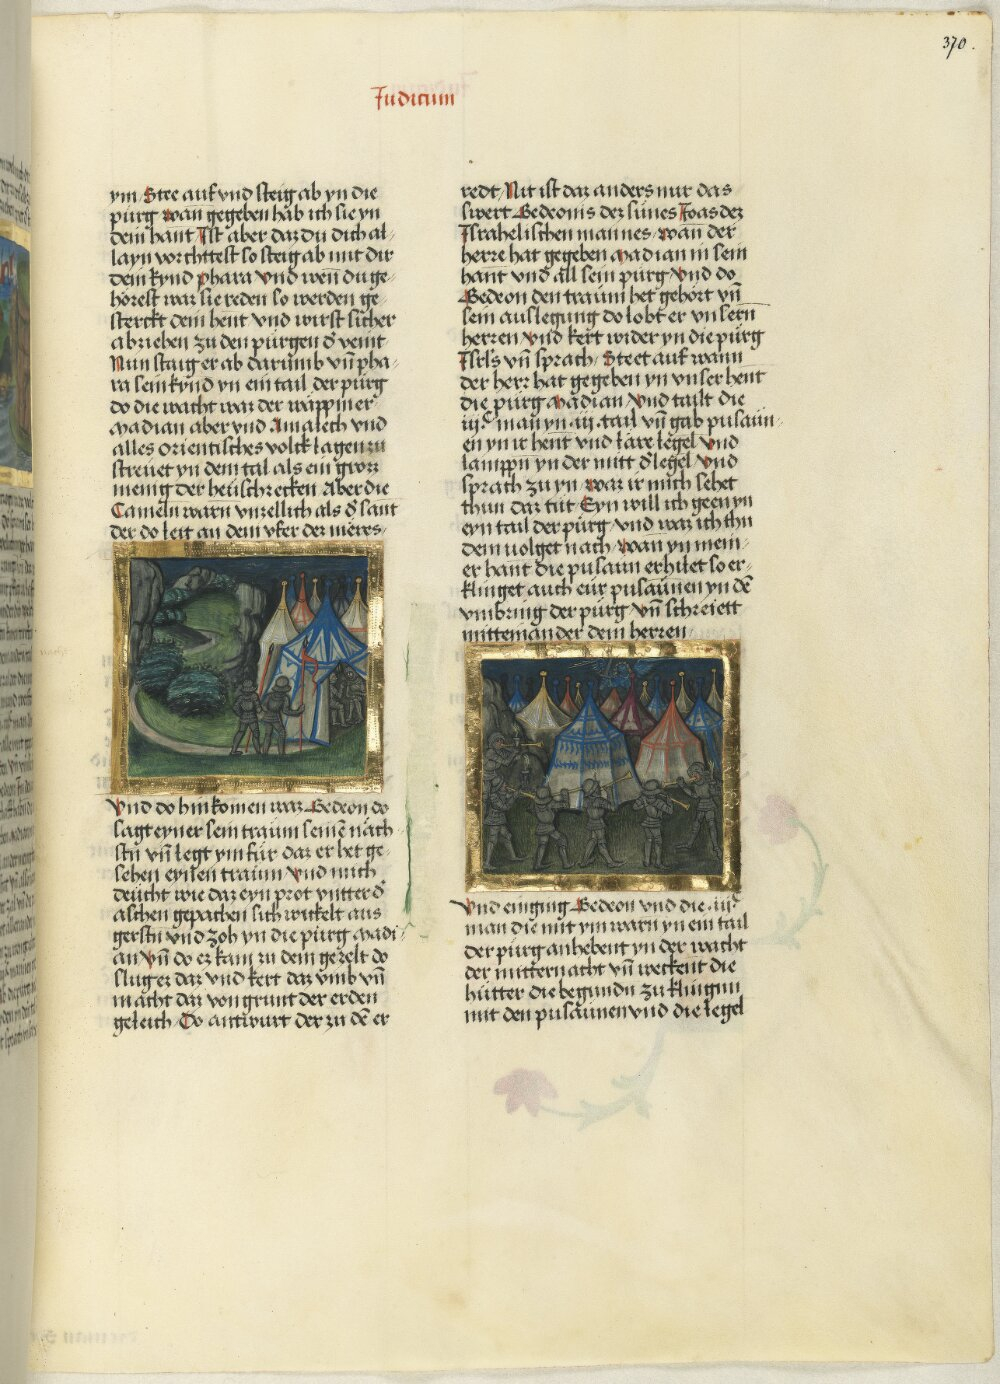 370.
Judicum
ym Stee auf vnd steig ab yn die
purg wan gegeben hab ich sie yn
dein hant Ist aber daz du dich al-
layn vorchttest so steig ab mit dir
dein kynd phara Vnd wenn du ge-
horest waz sie reden so werden ge-
sterckt dein hent vnd wirst sicher
absteben zu den purgen d veint
Nun staig er ab darumb vn pha-
ra sein kynd yn ein tail der purg
do die wacht waz der wappiner
Madian aber vnd Amalech vnd
alles orientisches volck lagen zu
streuet yn dem tal als ein groz
menig der heuschrecken Aber die
Cameln warn vnzellich als d sant
der do leit an dem vfer der meres
Vnd do hinkomen waz Gedeon do
sagt eyner sein traum seinē nach
stn vn legt ym fur daz er het ge-
sehen eynen traum Vnd mich
deucht wie daz eyn prot vntter d
aschen gepachen sich wickelt aus
gerstn vnd zoh yn die purg Madi-
an Vn do er kam zu dem gezelt do
slug ez daz vnd kert daz vmb vn
macht daz von grunt der erden
geleich Do antwurt der zu dē er
redt Nit ist daz anders nur das
swert Gedeonis dez sunes Joas dez
Israhelischen mannes wan der
herre hat gegeben Madian in sein
hant vnd all sein purg Vnd do
Gedeon den traum het gehort vn
sein auslegung do lobt er vnsern
herren Vnd kert wider yn die purg
Isrls vn sprach Steet auf wann
der herr hat gegeben yn vnser hent
die purg Madian Vnd tailt die
iijc man yn iij tail vn gab pusaun-
en yn ir hent vnd lare legel Vnd
lamppn yn der mitt d legel Vnd
sprach zu yn waz ir mich sehet
thun daz tut Eyn will ich geen yn
eyn tail der purg vnd waz ich thu
dem volget nach Wan yn mein-
er hant die pusaun erhilet so er-
klinget auch eur pusaunen yn dē
vmbring der purg vn schreiett
mitteinander dem herren
Vnd einging Gedeon vnd die iijc
man die mit ym warn yn ein tail
der purg anhebent yn der wacht
der mitternacht vn weckent die
hutter die begundn zu klingnn
mit den pusaunen vnd die legel